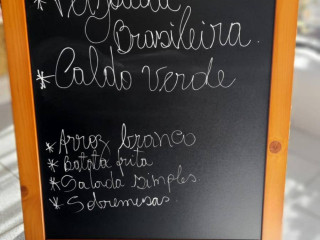 * Feijoada
Brasileira.
* Caldo Verde
* Arroz branco
* Batata frita
* Salada simples
* Sobremesas.